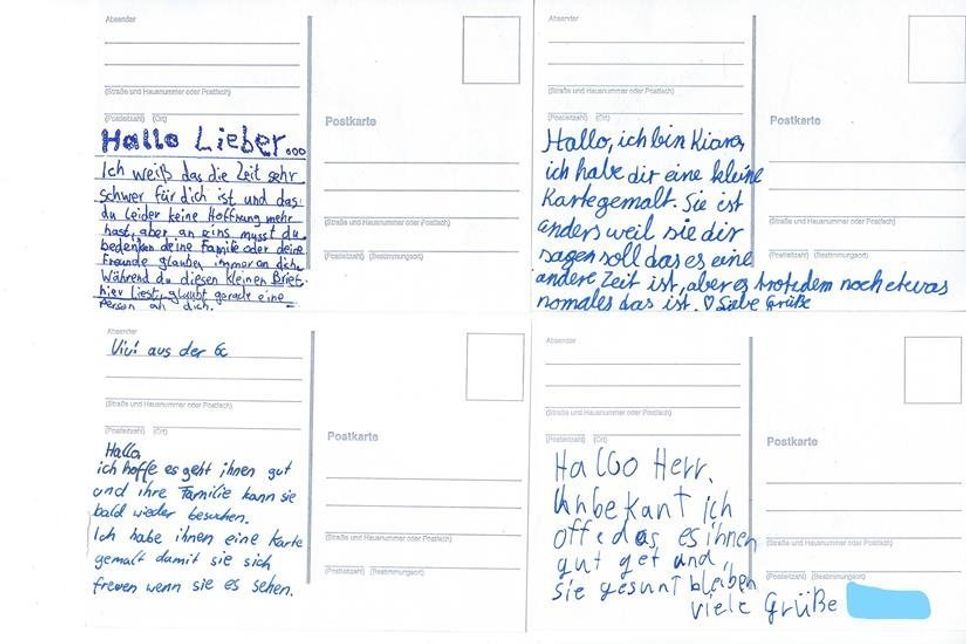 Absender
(Straße und Hausnummer oder Postfach)
(Postleitzahl) (Ort)
Postkarte
Hallo Lieber...
Ich weiß das die Zeit sehr
schwer für dich ist und das
du leider keine Hoffnung mehr
hast, aber an eins musst du
bedenken deine Familie oder deine
Freunde glauben immer an dich.
Während du diesen kleinen Brief
hier liest, glaubt gerade eine
Person an dich.
(Straße und Hausnummer oder Postfach)
(Postleitzahl) (Bestimmungsort)
Absender
(Straße und Hausnummer oder Postfach)
(Postleitzahl) (Ort)
Postkarte
Hallo, ich bin Kiara,
ich habe dir eine kleine
Karte gemalt. Sie ist
anders weil sie dir
sagen soll das es eine
andere Zeit ist, aber es trotzdem noch etwas
nomales das ist. ♡ Liebe Grüße
(Straße und Hausnummer oder Postfach)
(Postleitzahl) (Bestimmungsort)
Absender
Vivi aus der 6c
(Straße und Hausnummer oder Postfach)
(Postleitzahl) (Ort)
Postkarte
Hallo,
ich hoffe es geht ihnen gut
und ihre Familie kann sie
bald wieder besuchen.
Ich habe ihnen eine Karte
gemalt damit sie sich
freuen wenn sie es sehen.
(Straße und Hausnummer oder Postfach)
(Postleitzahl) (Bestimmungsort)
Absender
(Straße und Hausnummer oder Postfach)
(Postleitzahl) (Ort)
Postkarte
Hallo Herr.
Unbekant ich
offe das es ihnen
gut get und
sie gesunt bleiben
viele Grüße
(Straße und Hausnummer oder Postfach)
(Postleitzahl) (Bestimmungsort)